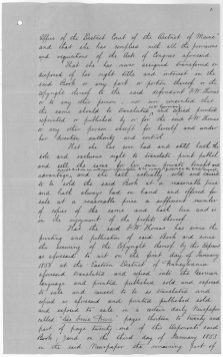 Office of the District Court of the District of Maine
and that she has complied with all the provisions
and regulations of the Acts of Congress aforesaid.
That she has never assigned transferred or
disposed of her right title and interest in the
said Book or any part or portion thereof or the
Copyright thereof to the said defendant F.W. Thomas
or to any other person; nor ever consented that
the same should be translated printed
reprinted or published by or for the said F.W. Thomas
or any other person except for herself and under
her direction authority and control.
That she has ever had and still hath the
sole and exclusive right to translate print publish
and sell the same for her own private benefit and
advantage, and she hath actually sold and caused
to be sold the said Book at a reasonable price
and hath always had on hand and offered for
sale at a reasonable price a sufficient number
of copies of the same and hath been and is
in the enjoyment of the profits thereof.
That the said F.W. Thomas has since the
printing and publication of said Book and since
the securing of the Copyright thereof by the deponent
as aforesaid to wit on the first day of January
1853 at the Eastern District of Pennsylvania
aforesaid translated and copied into the German
language and printed published sold and exposed
to sale and caused to be so translated and
copied as aforesaid and printed published sold
and exposed to sale in a certain daily Newspaper
called "Die Freie Presse" pages thirteen to twenty and
part of page twenty one of the deponent's said
Book; and on the third day of January 1853
in the said Newspaper the remaining part of